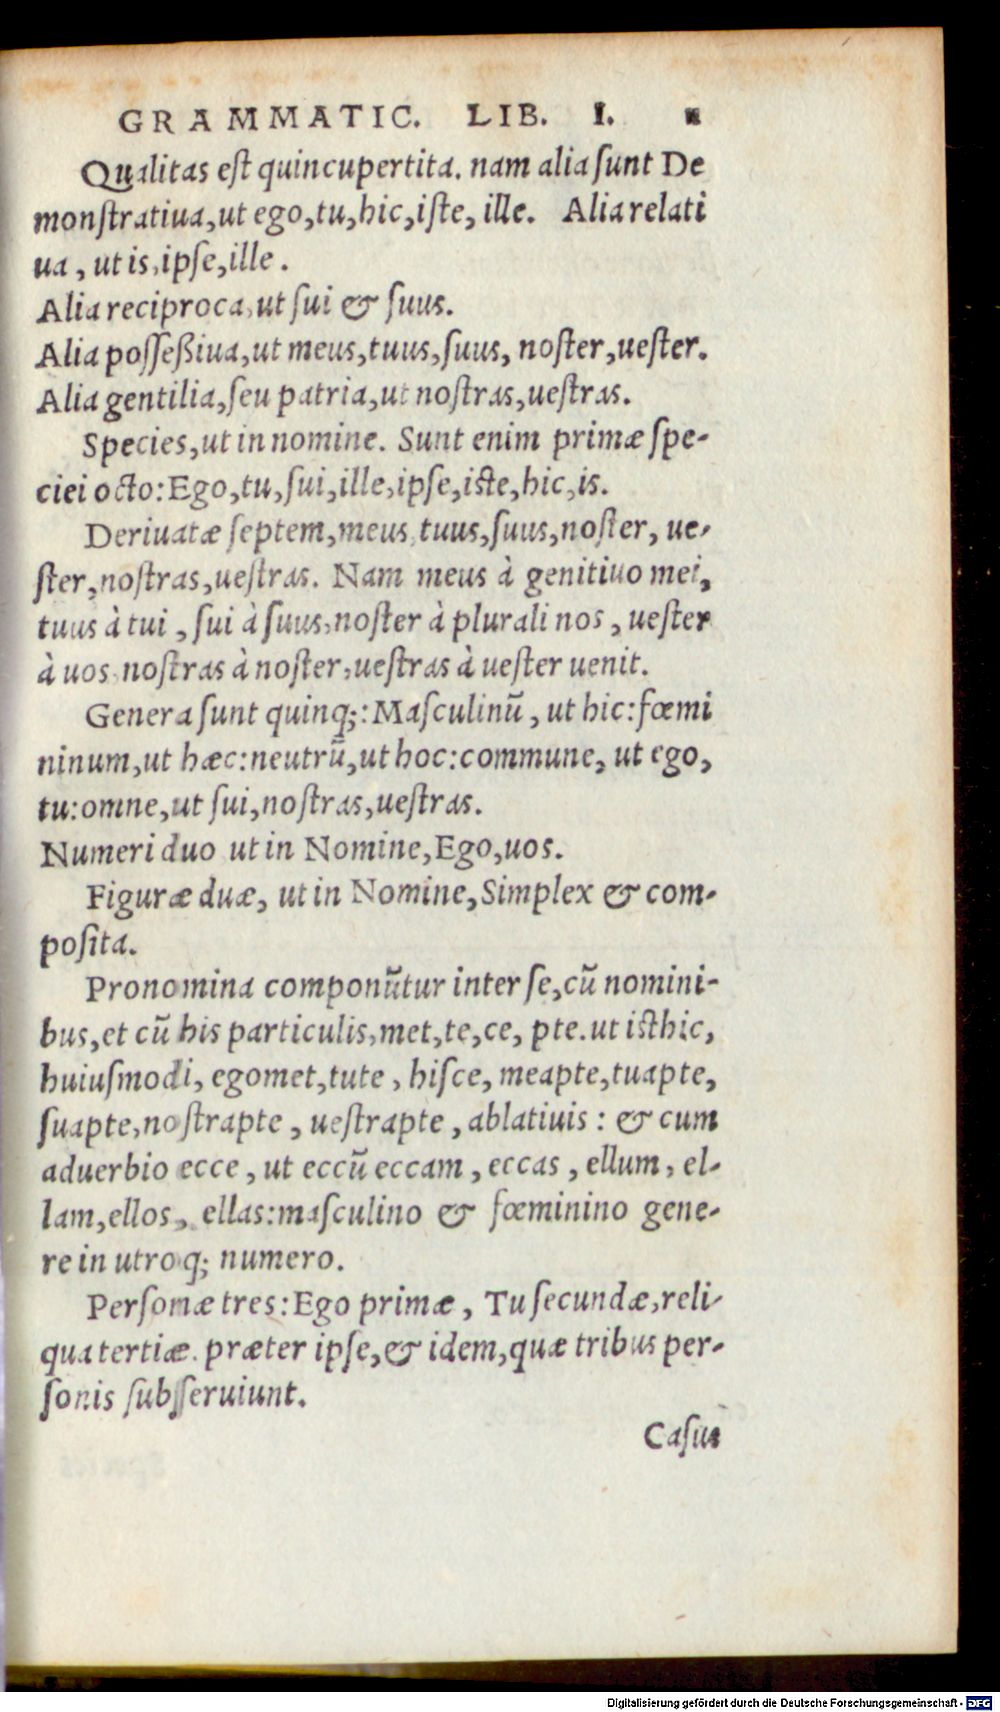 GRAMMATIC. LIB. I.
Qualitas est quincupertita. nam alia ſunt De
monſtratiua, ut ego, tu, hic, iſte, ille. Alia relati
ua, ut is, ipſe, ille.
Alia reciproca, ut ſui & ſuus.
Alia poſſeßiua, ut meus, tuus, ſuus, noſter, ueſter.
Alia gentilia, ſeu patria, ut noſtras, ueſtras.
Species, ut in nomine. Sunt enim primæ ſpe-
ciei octo: Ego, tu, ſui, ille, ipſe, iſte, hic, is.
Deriuatæ ſeptem, meus, tuus, ſuus, noſter, ue-
ſter, noſtras, ueſtras. Nam meus à genitiuo mei,
tuus à tui, ſui à ſuus, noſter à plurali nos, ueſter
à uos, noſtras à noſter, ueſtras à ueſter uenit.
Genera ſunt quinq;: Maſculinũ, ut hic: fœmi
ninum, ut hæc: neutrũ, ut hoc: commune, ut ego,
tu: omne, ut ſui, noſtras, ueſtras.
Numeri duo ut in Nomine, Ego, uos.
Figuræ duæ, ut in Nomine, Simplex & com-
poſita.
Pronomina componũtur inter ſe, cũ nomini-
bus, et cũ his particulis, met, te, ce, pte. ut iſthic,
huiuſmodi, egomet, tute, hiſce, meapte, tuapte,
ſuapte, noſtrapte, ueſtrapte, ablatiuis: & cum
aduerbio ecce, ut eccũ eccam, eccas, ellum, el-
lam, ellos, ellas: maſculino & fœminino gene-
re in utroq; numero.
Perſonæ tres: Ego primæ, Tu ſecundæ, reli-
qua tertiæ. præter ipſe, & idem, quæ tribus per-
ſonis ſubſſeruiunt.
Caſus
Digitalisierung gefördert durch die Deutsche Forschungsgemeinschaft - DFG